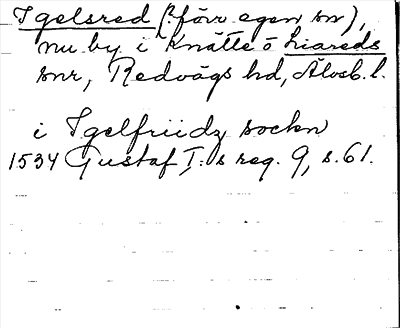 Igelsred (? förr egen sn),
nu by i Knätte o Liareds
snr, Redvägs hd, Älvsb. l.
i Igelfriidz sockn
1534 Gustaf I:s reg. 9, s. 61.